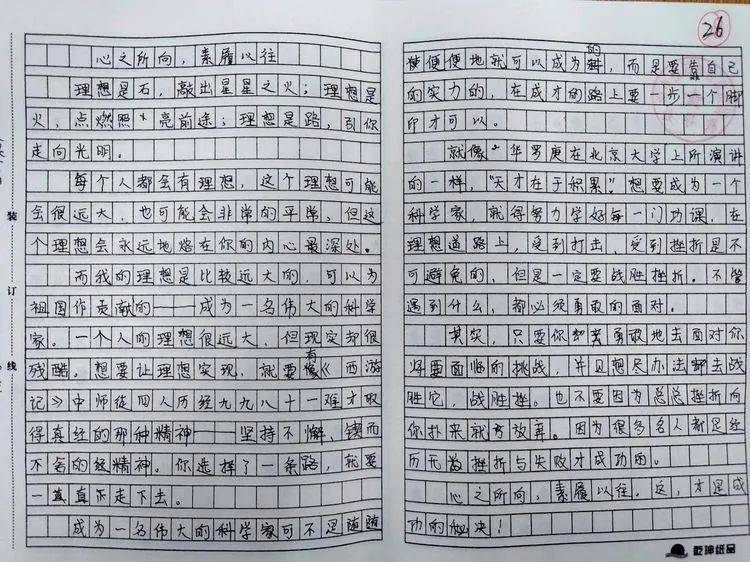 26
心之所向，素履以往
理想是石，敲出星星之火；理想是
火，点燃照亮前途；理想是路，引你
走向光明。
每个人都会有理想，这个理想可能
会很远大，也可能会非常的平常，但这
个理想会永远地烙在你的内心最深处。
而我的理想是比较远大的，可以为
祖国作贡献的——成为一名伟大的科学
家。一个人的理想很远大，但现实却很
残酷，想要让理想实现，就要有像《西游
记》中师徒四人历经九九八十一难才取
得真经的那种精神——坚持不懈、锲而
不舍的经精神。你选择了一条路，就要
一直真下走下去。
成为一名伟大的科学家可不是随随
便便地就可以成为的，而是要靠自己
的实力的，在成才的路上要一步一个脚
印才可以。
就像华罗庚在北京大学上所演讲
的一样，“天才在于积累”想要成为一个
科学家，就得努力学好每一门功课，在
理想道路上，受到打击、受到挫折是不
可避免的，但是一定要战胜挫折。不管
遇到什么，都必须勇敢的面对。
其实，只要你勇敢地去面对你
将要面临的挑战，并且想尽办法去战
胜它，战胜挫。也不要因为总总挫折向
你扑来就放弃。因为很多名人都是经
历无数挫折与失败才成功的。
心之所向，素履以往。这，才是成
功的秘决！
装
订
线
乾坤纸品